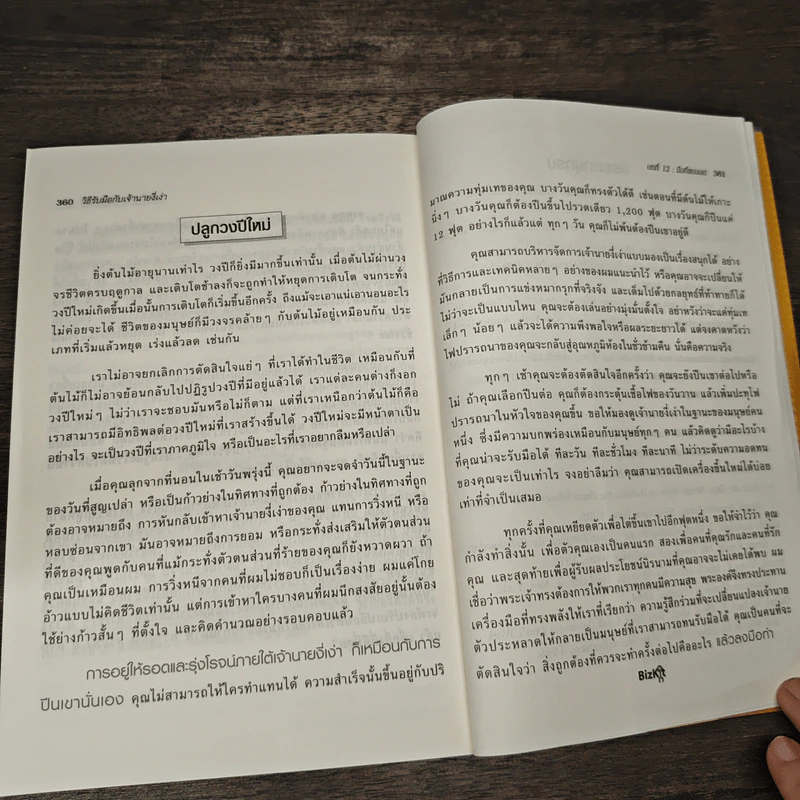 360 วิธีรับมือกับเจ้านายงี่เง่า
ปลูกวงปีใหม่
ยิ่งต้นไม้อายุนานเท่าไร วงปีก็ยิ่งมีมากขึ้นเท่านั้น เมื่อต้นไม้ผ่านวง
จรชีวิตครบฤดูกาล และเติบโตช้าลงก็จะถูกทำให้หยุดการเติบโต จนกระทั่ง
วงปีใหม่เกิดขึ้นเมื่อนั้นการเติบโตก็เริ่มขึ้นอีกครั้ง ถึงแม้จะเอาแน่เอานอนอะไร
ไม่ค่อยจะได้ ชีวิตของมนุษย์ก็มีวงจรคล้ายๆ กับต้นไม้อยู่เหมือนกัน ประ
เภทที่เริ่มแล้วหยุด เร่งแล้วลด เช่นกัน
เราไม่อาจยกเลิกการตัดสินใจแย่ๆ ที่เราได้ทำในชีวิต เหมือนกับที่
ต้นไม้ก็ไม่อาจย้อนกลับไปปฏิรูปวงปีที่มีอยู่แล้วได้ เราแต่ละคนต่างก็งอก
วงปีใหม่ๆ ไม่ว่าเราจะชอบมันหรือไม่ก็ตาม แต่ที่เราเหนือกว่าต้นไม้ก็คือ
เราสามารถมีอิทธิพลต่อวงปีใหม่ที่เราสร้างขึ้นได้ วงปีใหม่จะมีหน้าตาเป็น
อย่างไร จะเป็นวงปีที่เราภาคภูมิใจ หรือเป็นอะไรที่เราอยากลืมหรือเปล่า
เมื่อคุณลุกจากที่นอนในเช้าวันพรุ่งนี้ คุณอยากจะจดจำวันนี้ในฐานะ
ของวันที่สูญเปล่า หรือเป็นก้าวย่างในทิศทางที่ถูกต้อง ก้าวย่างในทิศทางที่ถูก
ต้องอาจหมายถึง การหันกลับเข้าหาเจ้านายงี่เง่าของคุณ แทนการวิ่งหนี หรือ
หลบซ่อนจากเขา มันอาจหมายถึงการยอม หรือกระทั่งส่งเสริมให้ตัวตนส่วน
ที่ดีของคุณพูดกับคนที่แม้กระทั่งตัวตนส่วนที่ร้ายของคุณก็ยังหวาดผวา ถ้า
คุณเป็นเหมือนผม การวิ่งหนีจากคนที่ผมไม่ชอบก็เป็นเรื่องง่าย ผมแค่โกย
อ้าวแบบไม่คิดชีวิตเท่านั้น แต่การเข้าหาใครบางคนที่ผมนึกสงสัยอยู่นั้นต้อง
ใช้ย่างก้าวสั้นๆ ที่ตั้งใจ และคิดคำนวณอย่างรอบคอบแล้ว
การอยู่ให้รอดและรุ่งโรจน์ภายใต้เจ้านายงี่เง่า ก็เหมือนกับการ
ปีนเขานั่นเอง คุณไม่สามารถให้ใครทำแทนได้ ความสำเร็จนั้นขึ้นอยู่กับปริ
บทที่ 12 : 361
มาณความทุ่มเทของคุณ บางวันคุณก็ทรงตัวได้ดี เช่นตอนที่มีต้นไม้ให้เกาะ
นิ่งๆ บางวันคุณก็ต้องปีนขึ้นไปรวดเดียว 1,200 ฟุต บางวันคุณก็ปีนแค่
12 ฟุต อย่างไรก็แล้วแต่ ทุกๆ วัน คุณก็ไม่พ้นต้องปีนเขาอยู่ดี
คุณสามารถบริหารจัดการเจ้านายงี่เง่าแบบมองเป็นเรื่องสนุกได้ อย่าง
ที่วิธีการและเทคนิคหลายๆ อย่างของผมแนะนำไว้ หรือคุณอาจจะเปลี่ยนให้
มันกลายเป็นการแข่งหมากรุกที่จริงจัง และเต็มไปด้วยกลยุทธ์ที่ท้าทายก็ได้
ไม่ว่าจะเป็นแบบไหน คุณจะต้องเล่นอย่างมุ่งมั่นตั้งใจ อย่าหวังว่าจะแค่ทุ่มเท
เล็กๆ น้อยๆ แล้วจะได้ความพึงพอใจหรือผลระยะยาวได้ แต่จงคาดหวังว่า
ไฟปรารถนาของคุณจะกลับสู่อุณหภูมิห้องในชั่วข้ามคืน นั่นคือความจริง
ทุกๆ เช้าคุณจะต้องตัดสินใจอีกครั้งว่า คุณจะยังปีนเขาต่อไปหรือ
ไม่ ถ้าคุณเลือกปีนต่อ คุณก็ต้องกระตุ้นเชื้อไฟของวันวาน แล้วเพิ่มปะทุไฟ
ปรารถนาในหัวใจของคุณขึ้น ขอให้มองดูเจ้านายงี่เง่าในฐานะของมนุษย์คน
หนึ่ง ซึ่งมีความบกพร่องเหมือนกับมนุษย์ทุกๆ คน แล้วคิดดูว่ามีอะไรบ้าง
ที่คุณน่าจะรับมือได้ ทีละวัน ทีละชั่วโมง ทีละนาที ไม่ว่าระดับความอดทน
ของคุณจะเป็นเท่าไร จงอย่าลืมว่า คุณสามารถเปิดเครื่องขึ้นใหม่ได้บ่อย
เท่าที่จำเป็นเสมอ
ทุกครั้งที่คุณเหยียดตัวเพื่อไต่ขึ้นเขาไปอีกฟุตหนึ่ง ขอให้จำไว้ว่า คุณ
กำลังทำสิ่งนั้น เพื่อตัวคุณเองเป็นคนแรก สองเพื่อคนที่คุณรักและคนที่รัก
คุณ และสุดท้ายเพื่อผู้รับผลประโยชน์นิรนามที่คุณอาจจะไม่เคยได้พบ ผม
เชื่อว่าพระเจ้าทรงต้องการให้พวกเราทุกคนมีความสุข พระองค์จึงทรงประทาน
เครื่องมือที่ทรงพลังให้เราที่เรียกว่า ความรู้สึกร่วมที่จะเปลี่ยนแปลงเจ้านาย
ตัวประหลาดให้กลายเป็นมนุษย์ที่เราสามารถทนรับมือได้ คุณเป็นคนที่จะ
ตัดสินใจว่า สิ่งถูกต้องที่ควรจะทำครั้งต่อไปคืออะไร แล้วลงมือทำ
BizKit